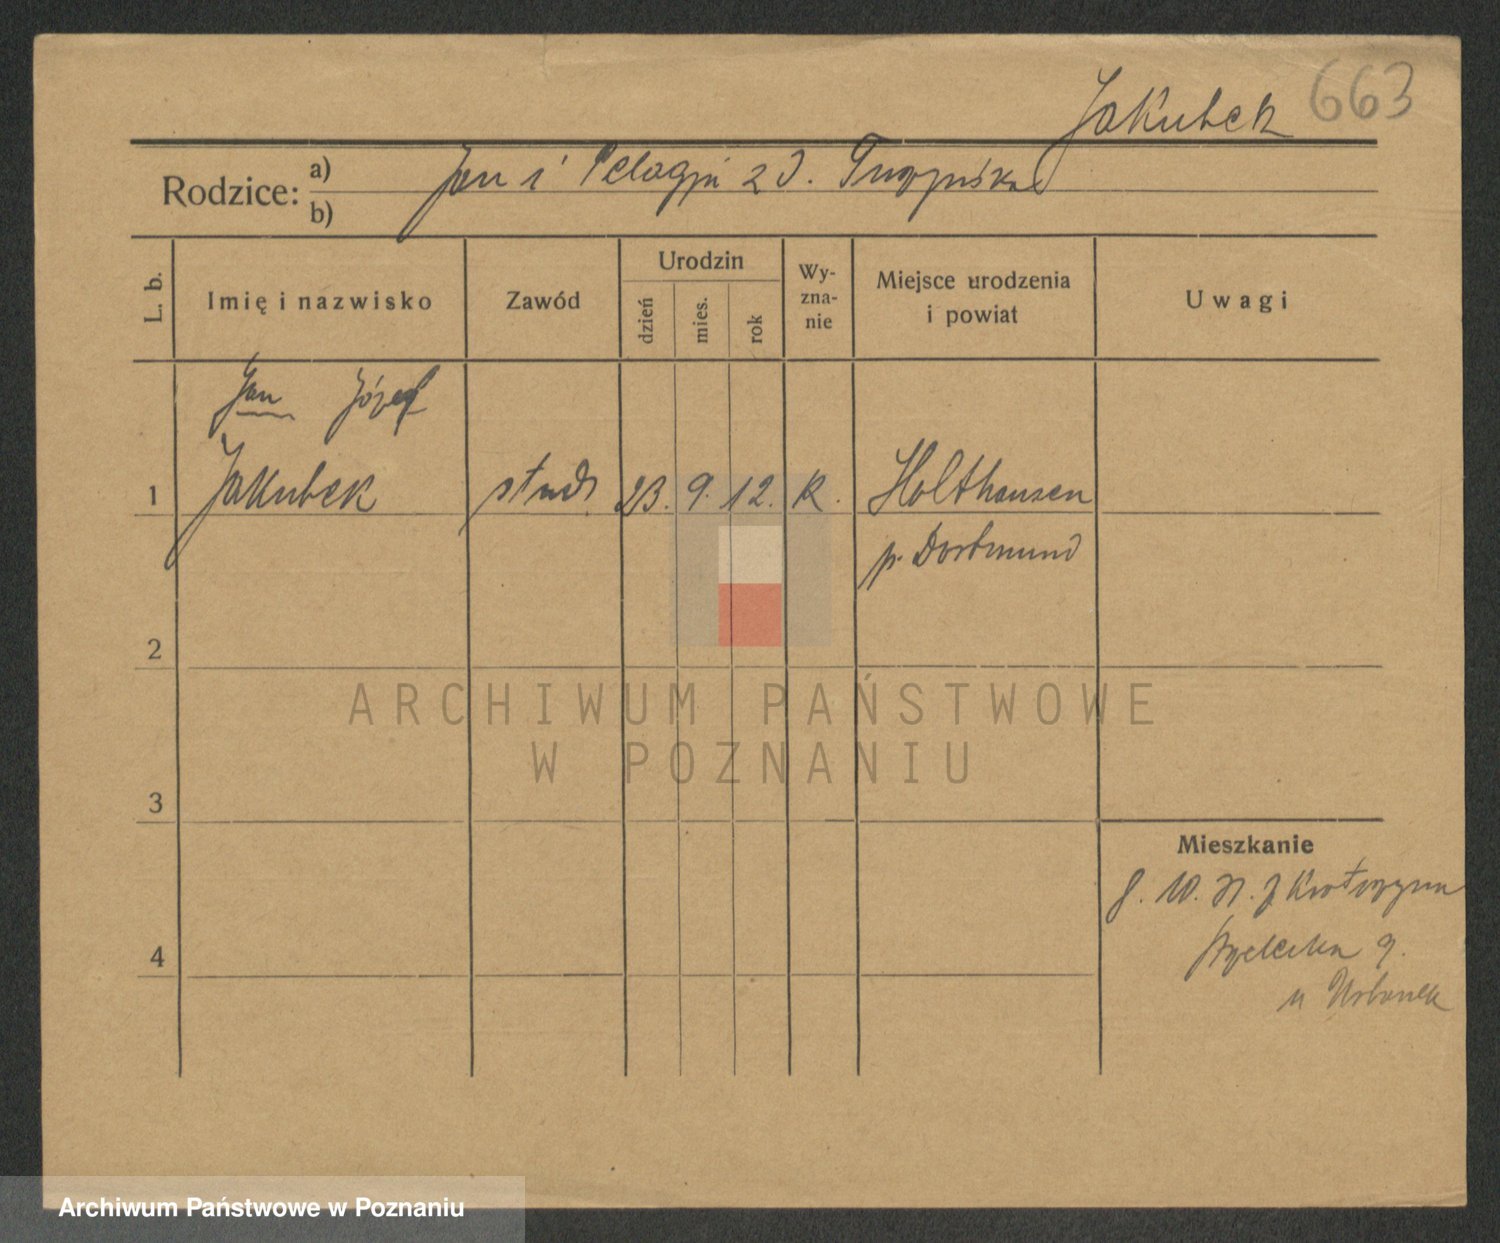 663
Jakubek
Rodzice: a) Jan i Pelagja z d.
b)
L. b.
Imię i nazwisko
Zawód
Urodzin
dzień
mies.
rok
Wy-
zna-
nie
Miejsce urodzenia
i powiat
Uwagi
Jan Józef
1 Jakubek stud. 23. 9. 12. k. Holthausen
p. Dortmund
2
3
4
Mieszkanie
z Krotoszyna
9.
u Urbanek
ARCHIWUM PAŃSTWOWE
W POZNANIU
Archiwum Państwowe w Poznaniu